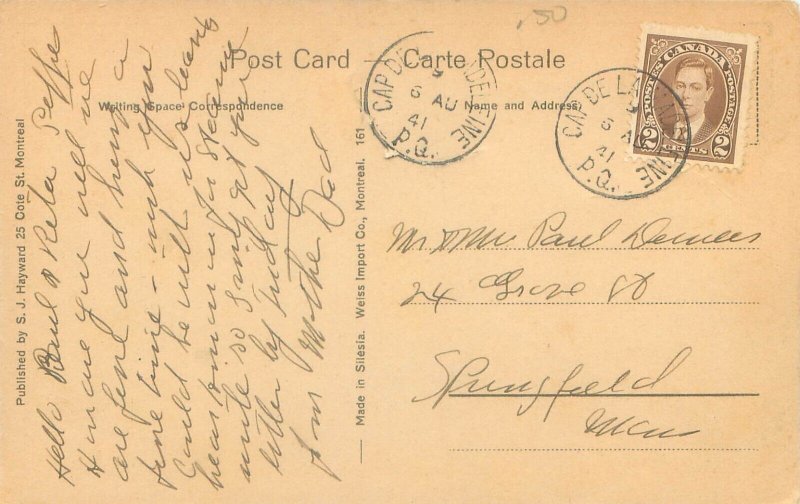 .50
Post Card — Carte Postale
Writing Space Correspondence
Name and Address
CAP DE LA MADELEINE
9
6 AU
41
P.Q.
CAP DE LA MADELEINE
9
6 AU
41
P.Q.
POSTES CANADA POSTAGE
2 CENTS 2
Published by S. J. Hayward 25 Cote St. Montreal
Made in Silesia. Weiss Import Co., Montreal. 161
Hello Paul & Reta
How are you well we
are fine and having a
fine time - wish you
could be with us leaving
here this for Ste Anne
write so I might get your
letter by Friday
from Mother Dad
Mr & Mrs Paul Demers
24 Grove St
Springfield
Mass